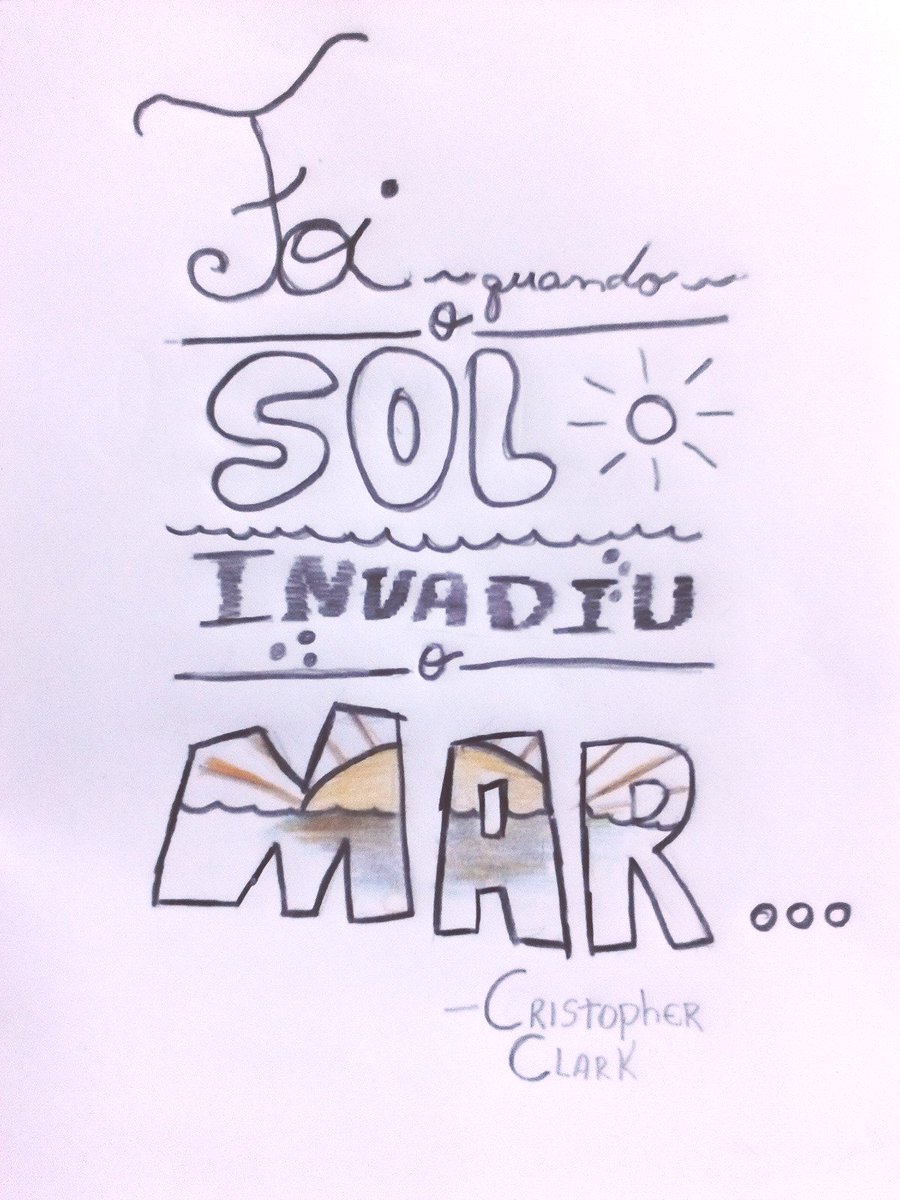 Foi ~quando~
o
SOL
INVADIU
o
MAR...
-CRISTOPHER
CLARK